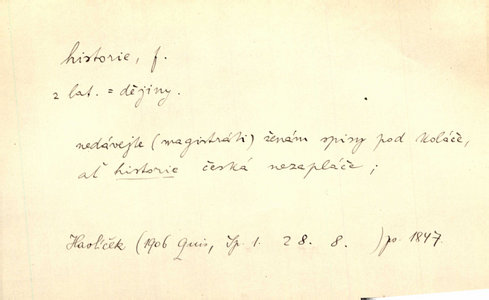 historie, f.
z lat. = dějiny.
nedávejte (magistráti) ženám spisy pod koláče,
ať historie česká nezapláče;
Havlíček (1906 Quis, Sp. 1. 28. 8. ) po 1847.